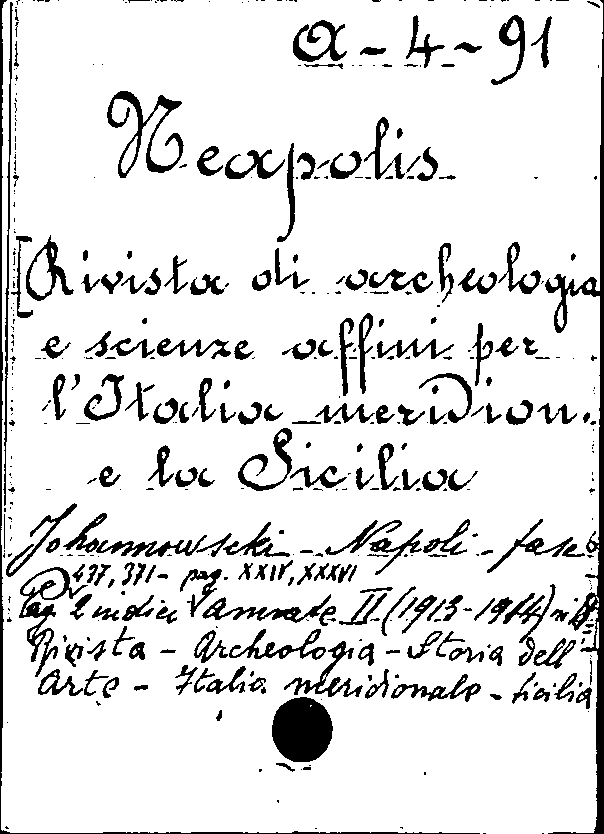 a-4-91
Neapolis
[Rivista di archeologia
e scienze affini per
l'Italia meridion.
e la Sicilia
Johannowscki - Napoli - fasc
437, 371 - pag. XXIV, XXXVI
Pag. 2 indici Annate II (1913-1914)
Rivista - Archeologia - Storia dell'
Arte - Italia meridionale - Sicilia